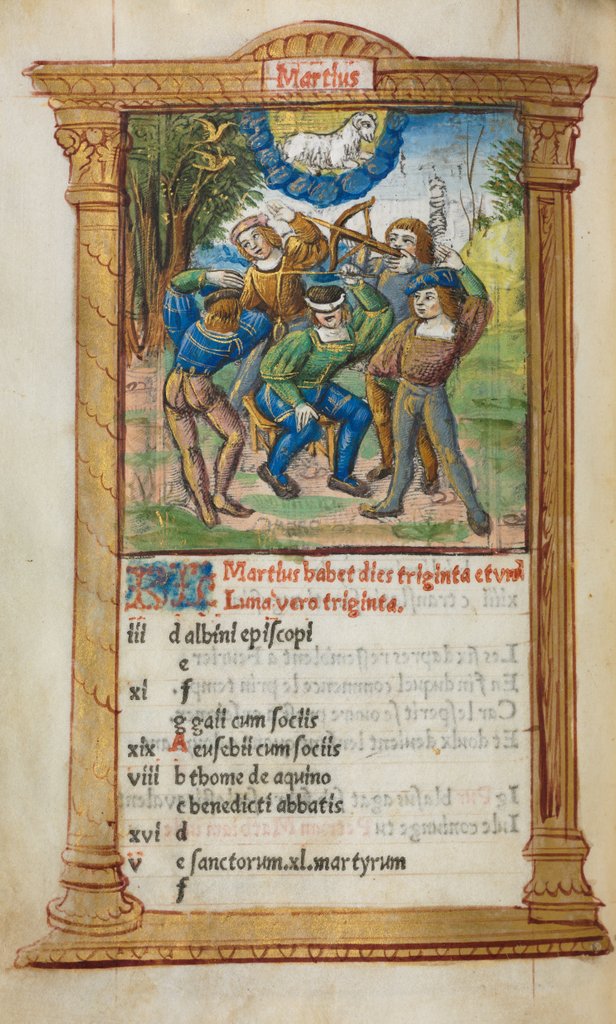 Martius
KL Martius habet dies triginta et vnū
Luna vero triginta.
iii d albini episcopi
e
xi f
g gaii cum sociis
xix A eusebii cum sociis
viii b thome de aquino
c benedicti abbatis
xvi d
v e sanctorum.xl.martyrum
f